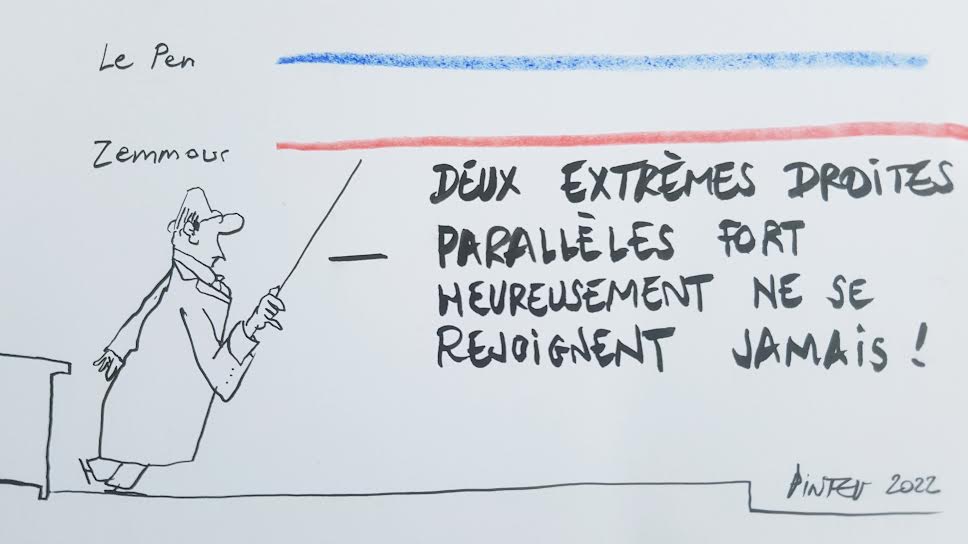 Le Pen
Zemmour
— DEUX EXTRÈMES DROITES
PARALLÈLES FORT
HEUREUSEMENT NE SE
REJOIGNENT JAMAIS !
2022